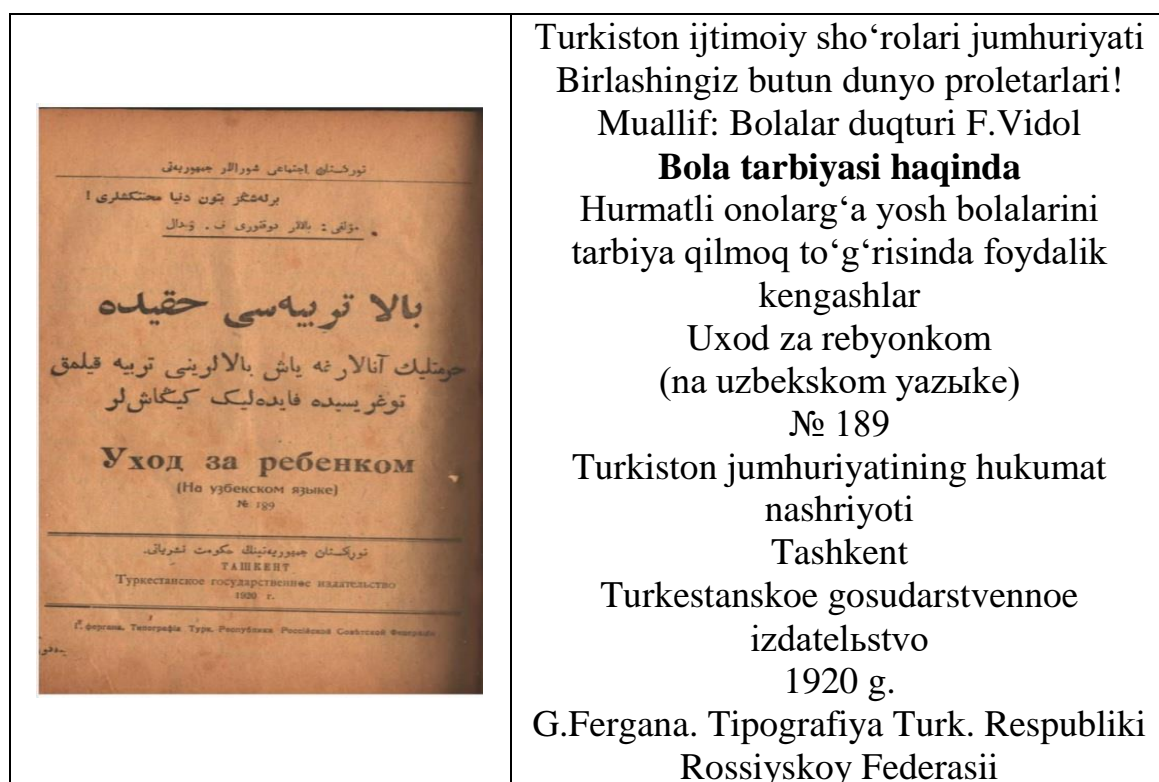 تورکستان اجتماعی شورالار جمهوریتی
برله‌شڭز بتون دنیا محنتکشلری !
مؤلفی : بالالر دوقتوری ف . ویدال
بالا تربیه‌سی حقیده
حرمتلیك آنالارغه یاش بالالرینی تربیه قیلمق
توغریسیده فایده‌لیك کیڭاش‌لر
Уход за ребенком
(На узбекском языке)
№ 189
تورکستان جمهوریه‌تینڭ حکومت نشریاتی.
ТАШКЕНТ
Туркестанское государственное издательство
1920 г.
Г. Фергана. Типографія Турк. Республики Россійской Советской Федераціи
Turkiston ijtimoiy sho‘rolari jumhuriyati
Birlashingiz butun dunyo proletarlari!
Muallif: Bolalar duqturi F.Vidol
Bola tarbiyasi haqinda
Hurmatli onolarg‘a yosh bolalarini
tarbiya qilmoq to‘g‘risinda foydalik
kengashlar
Uxod za rebyonkom
(na uzbekskom yazыke)
№ 189
Turkiston jumhuriyatining hukumat
nashriyoti
Tashkent
Turkestanskoe gosudarstvennoe
izdatelьstvo
1920 g.
G.Fergana. Tipografiya Turk. Respubliki
Rossiyskoy Federasii